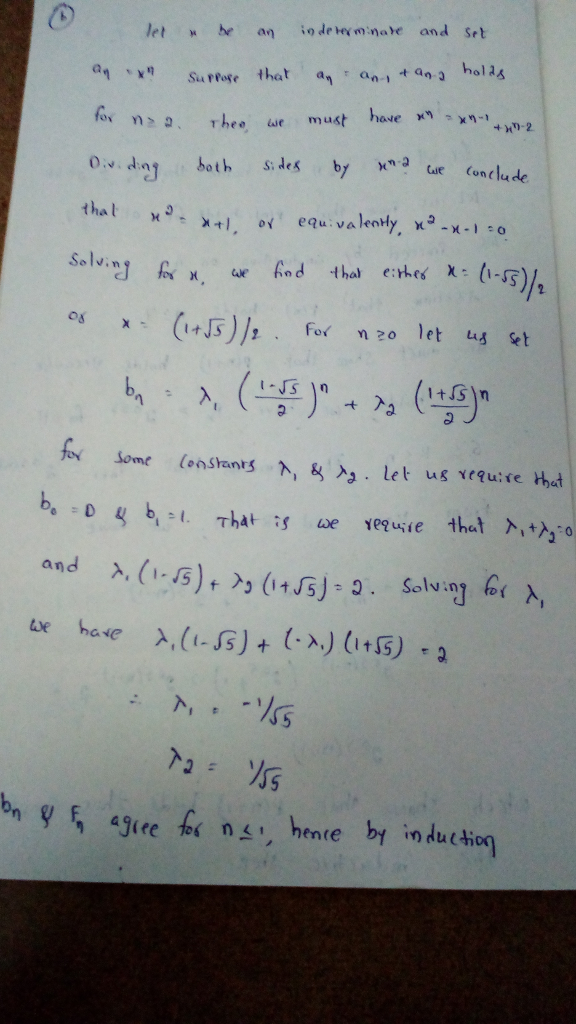 (b)
let x be an indeterminate and set
aₙ = xⁿ suppose that aₙ = aₙ₋₁ + aₙ₋₂ holds
for n≥2. Then, we must have xⁿ = xⁿ⁻¹ + xⁿ⁻²
Dividing both sides by xⁿ⁻² we conclude
that x² = x+1, or equivalently, x²-x-1=0
Solving for x, we find that either x = (1-√5)/2
or x = (1+√5)/2. For n≥0 let us set
bₙ = λ₁ ((1-√5)/2)ⁿ + λ₂ ((1+√5)/2)ⁿ
for some constants λ₁ & λ₂. Let us require that
b₀ = 0 & b₁ = 1. That is we require that λ₁+λ₂=0
and λ₁(1-√5) + λ₂(1+√5) = 2. Solving for λ₁
we have λ₁(1-√5) + (-λ₁)(1+√5) = 2
∴ λ₁ = -1/√5
λ₂ = 1/√5
bₙ & Fₙ agree for n≤1, hence by induction